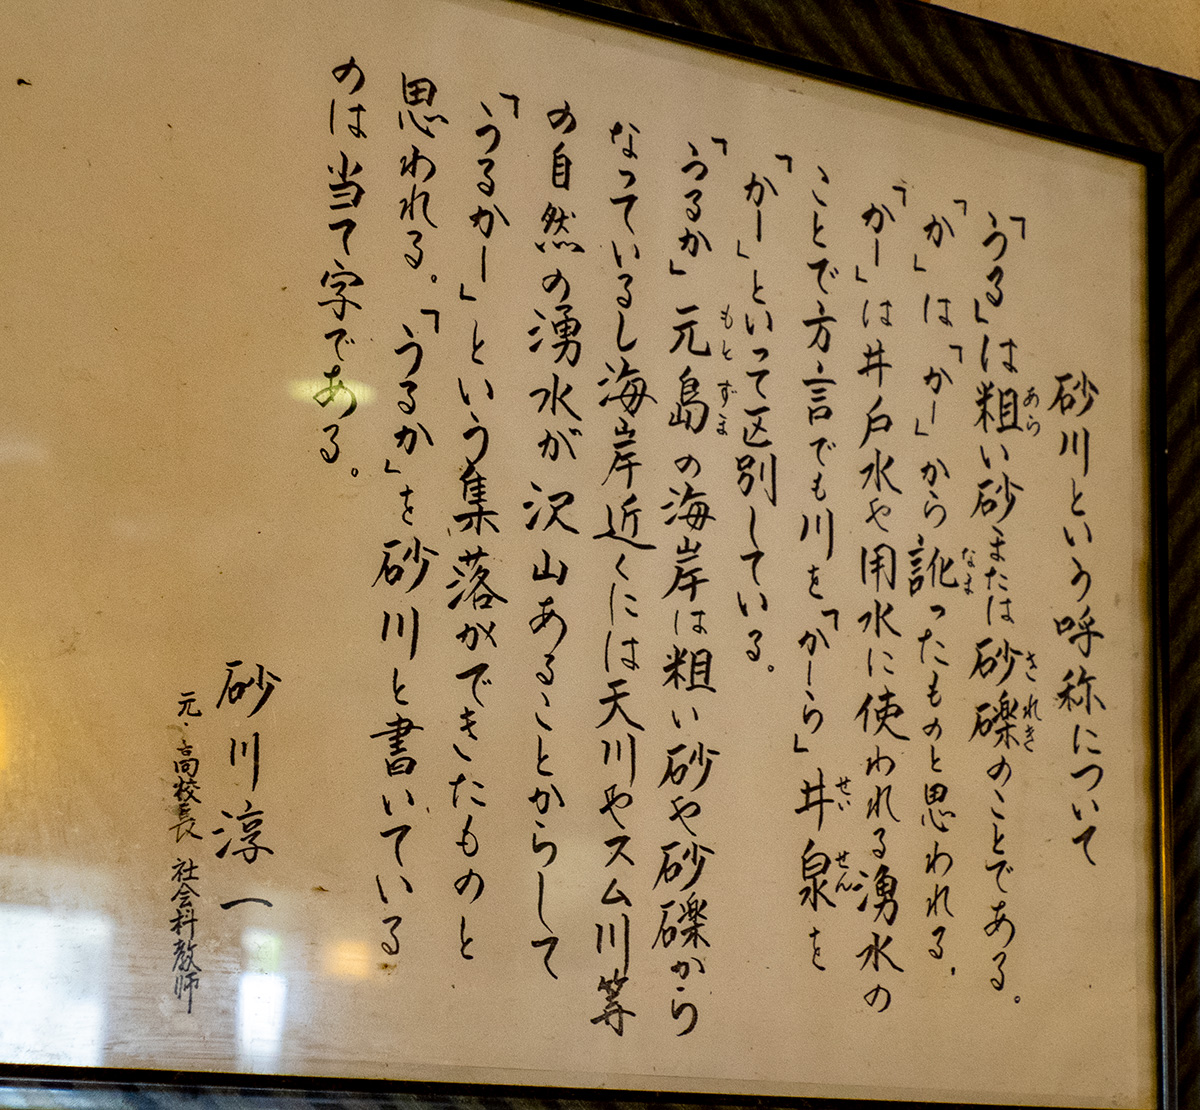 砂川という呼称について
「うる」は粗い砂または砂礫のことである。
あら
されき
「か」は「かー」から訛ったものと思われる、
なま
「かー」は井戸水や用水に使われる湧水の
ことで方言でも川を「かーら」井泉を
せいせん
「かー」といって区別している。
「うるか」元島の海岸は粗い砂や砂礫から
もとずま
なっているし海岸近くには天川やスム川等
の自然の湧水が沢山あることからして
「うるかー」という集落ができたものと
思われる。「うるか」を砂川と書いている
のは当て字である。
砂川淳一
元・高校長 社会科教師